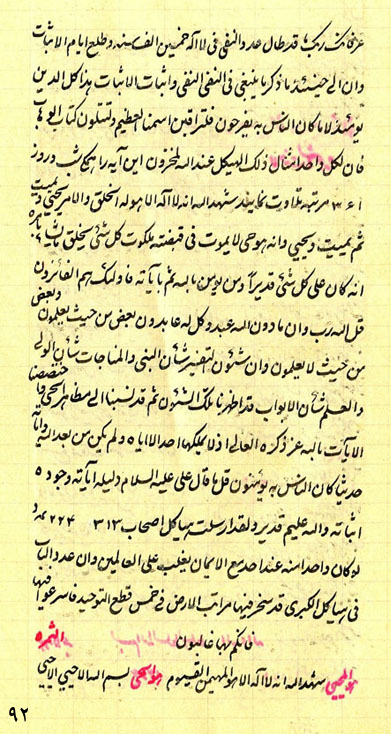 عرفانک ربک قد طال عدد النفی فی لا اله خمسین الف سنه و طلع ایام الاثبات
وان الی حینئذ ما ذکر ما ینبغی فی النفی النفی و اثبات الاثبات هذا کل الدین
یومئذ لا ما کان الناس به یفرحون فلتراقبن اسمنا العظیم و لتتلون کتاب الوهاب
فان لکل واحد امثال ذلک الهیکل عند الله لمخزون این آیه را هیکل شب و روز
۳۶۱ مرتبه تلاوت نمایند شهد الله انه لا اله الا هو له الخلق و الامر یحیی و یمیت
ثم یمیت و یحیی و انه هو حی لا یموت فی قبضته ملکوت کل شئ یخلق ما یشاء بامره
انه کان علی کل شئ قدیرا و من یومن بالله ثم بآیاته فاولئک هم الفائزون
قل الله رب و ان ما دون الله عبد و کل له عابدون بعض من حیث یعلمون و بعض
من حیث لا یعلمون و ان شئون التفسیر شأن النبی و المناجات شأن الولی
و العلم شأن الابواب قد اظهرنا تلک الشئون ثم قد نسبنا الی مظاهر الحی و ما خصصنا
الآیات بالله عز ذکره العالی اذ لا یملکها احد الا ایاه و لم یکن من بعد الله و آیاته
حدیثا کان الناس به یومنون قلها قال علی علیه السلام دلیله آیاته و جوده
اثباته و الله علیم قدیر و لقد ارسلت هیاکل اصحاب ۳۱۳ ۲۲۴
لو کان واحدا منه عند احد مع الایمان یغلب علی العالمین و ان عدد الباب
فی هیاکل الکبری قد سخر فیها مراتب الارض فی خمس قطع التوحید فاسرعوا فیها
فانکم بها غالبون
هو المحیی شهد الله انه لا اله الا هو المهیمن القیوم هو المحیی بسم الله الاحیی الاحیی
الثمره
۹۲